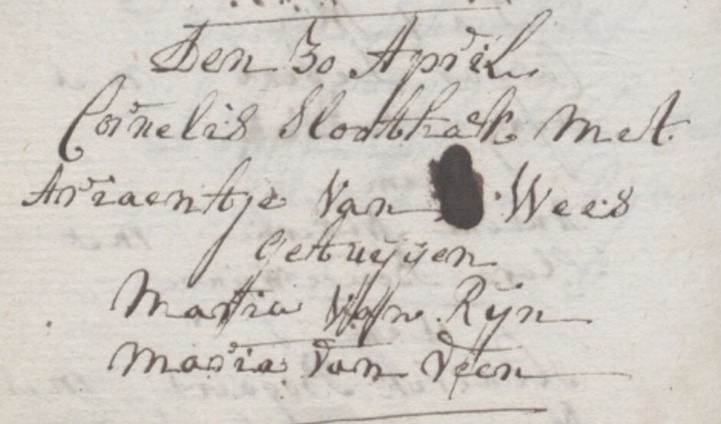 Den 30 April
Cornelis Sloothaak met
Ariaentje Van Wees
getuijgen
Maria Van Rijn
Maria Van Veen